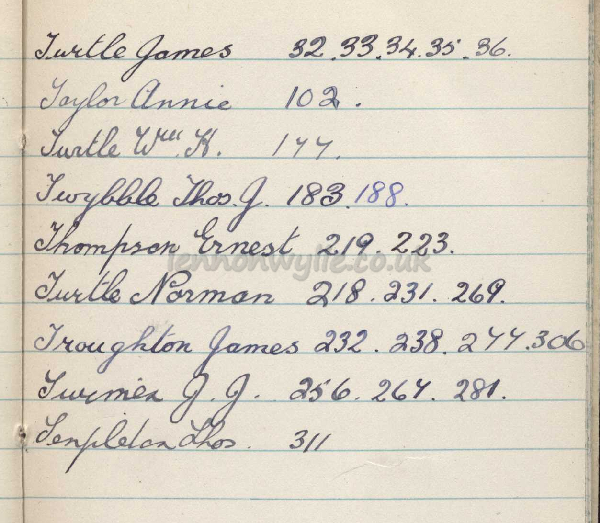 Turtle James 32.33.34.35.36.
Taylor Annie 102.
Turtle Wm. H. 177.
Twybble Thos. J. 183.188.
Thompson Ernest 219.223.
lennonwylie.co.uk
Turtle Norman 218.231.269.
Troughton James 232.238.277.306
Turmer J. J. 256.267.281.
Templeton Thos. 311